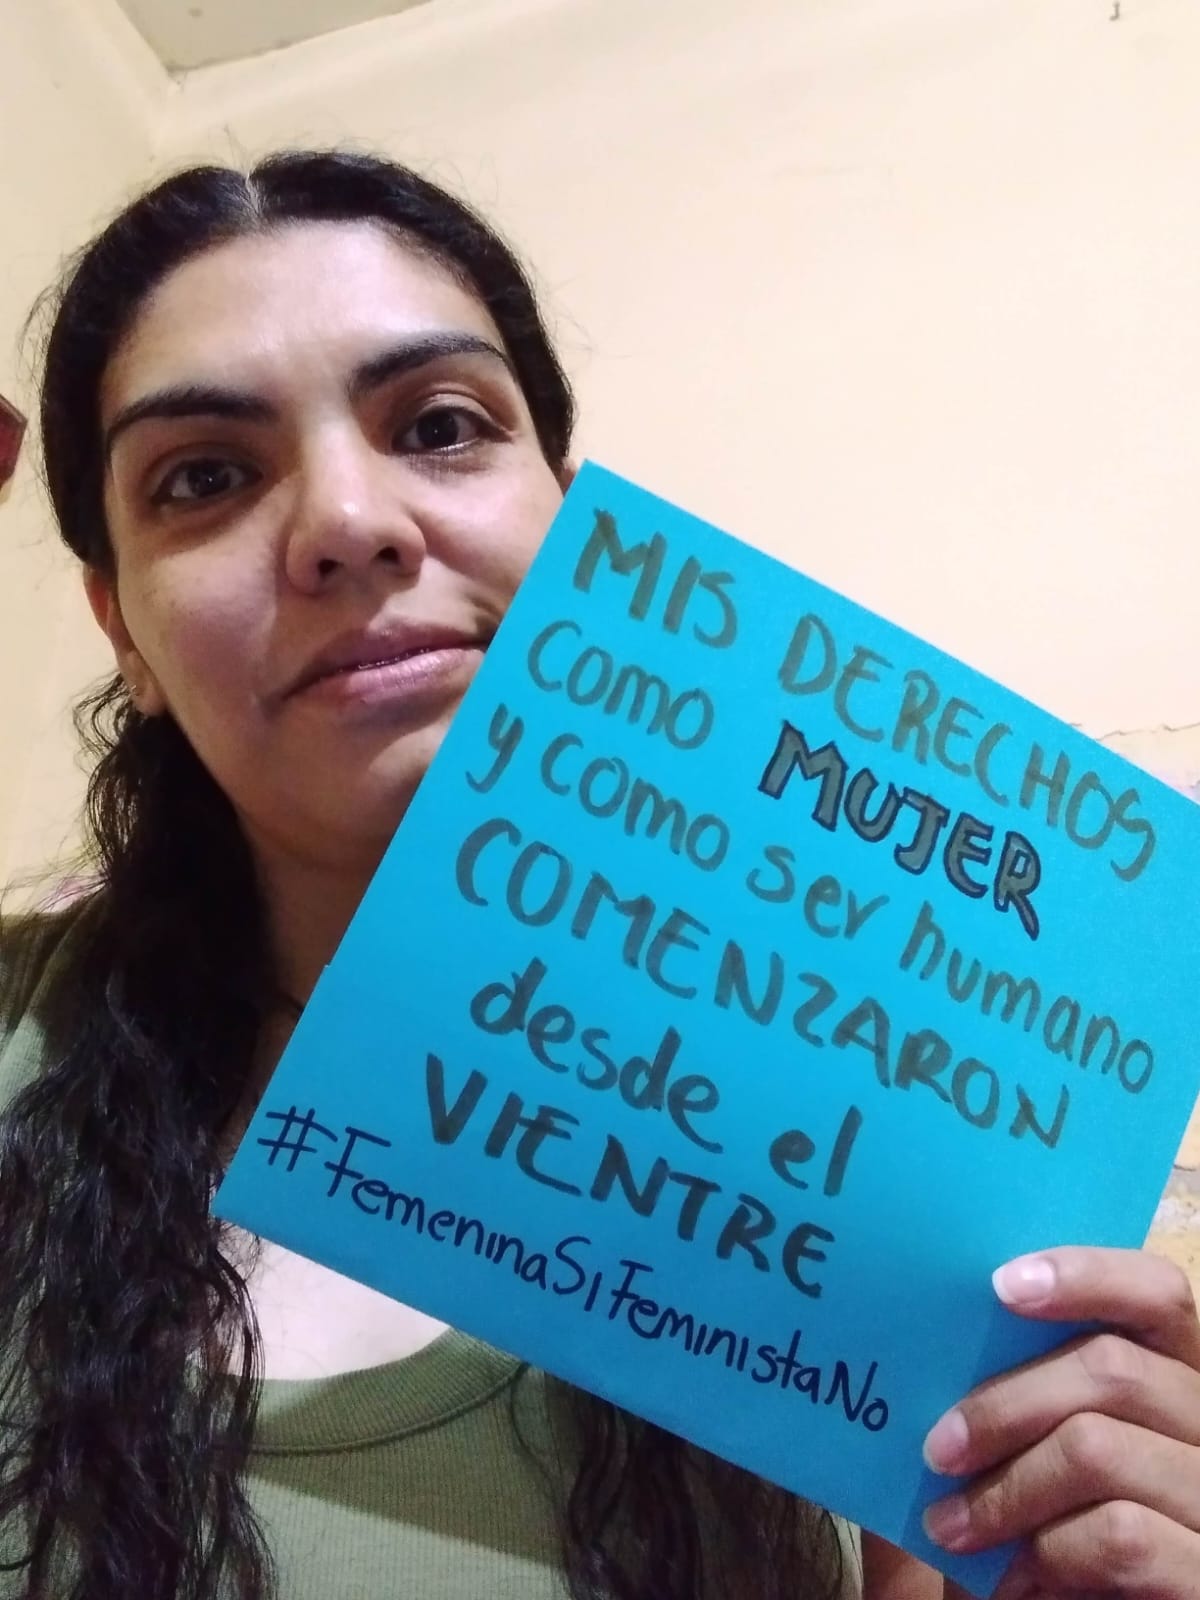 MIS DERECHOS
como MUJER
y como ser humano
COMENZARON
desde el
VIENTRE
#FemeninaSiFeministaNo